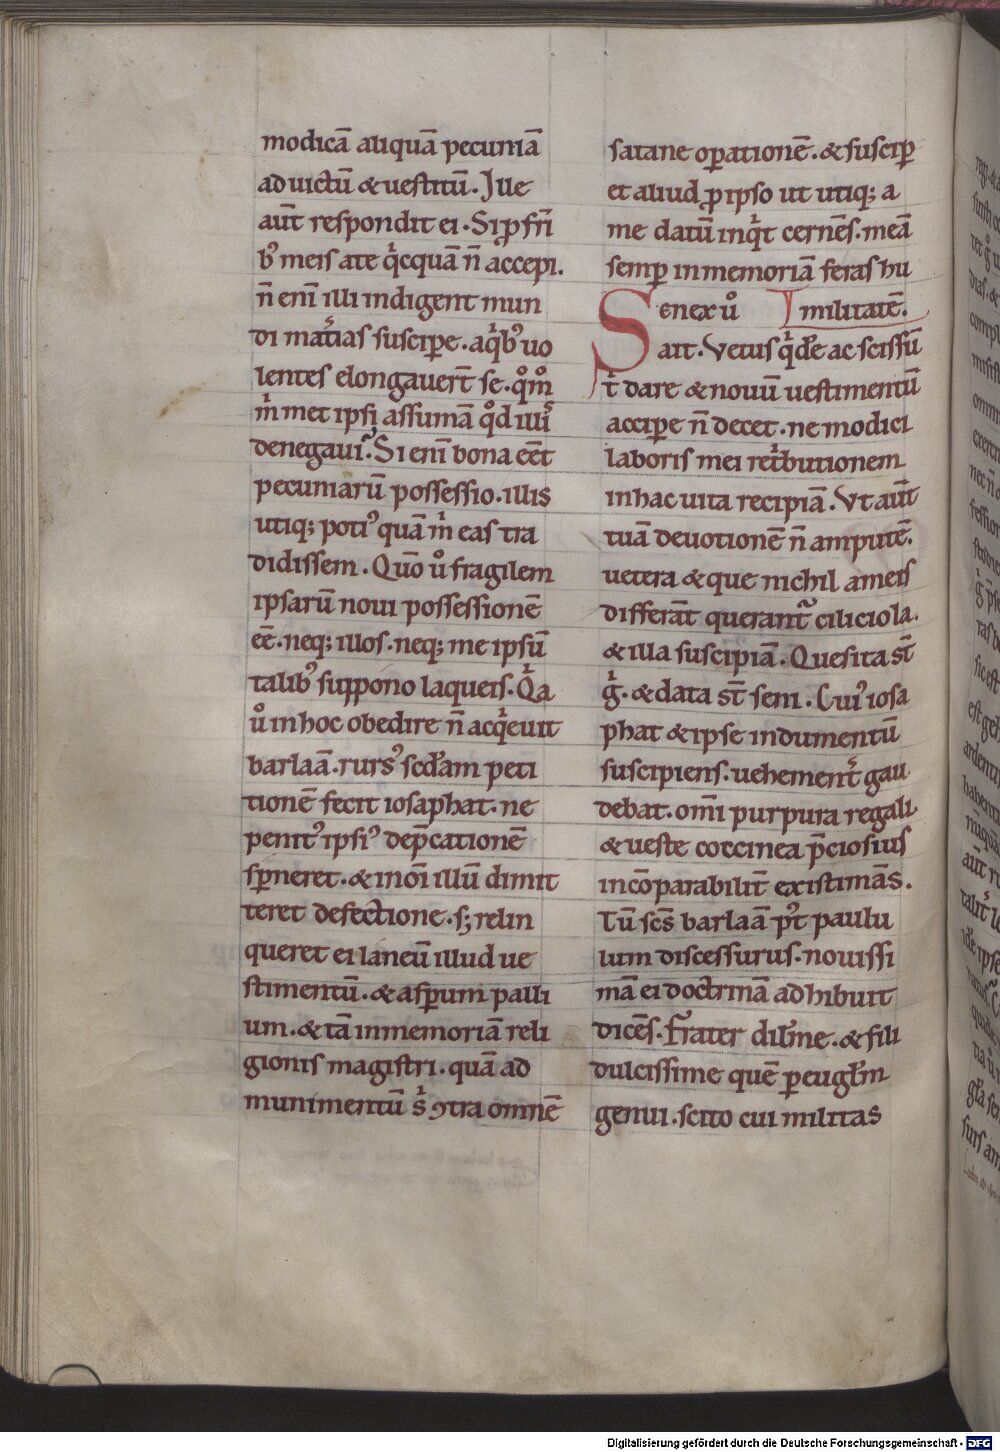 modicā aliquā pecuniā
ad uictū & uestitū. Ille
aūt respondit ei. Si ꝓ frī
bꝰ meis a te qͥcquā n̄ accepi.
n̄ enī illi indigent mun
di mat̓ias suscipe. a qͥbꝰ uo
lentes elongauert̄ se. qͦmͦ
mͥ met ipsi assumā qͦd illiˢ
denegaui. Si enī bona eēt
pecuniarū possessio. illis
utiq; potiꝰ quā mͥ eas tra
didissem. Quō uͦ fragilem
ipsarū noui possessionē
eē. neq; illos. neq; me ipsū
talibꝰ suppono laqueis. Qͥa
uͦ in hoc obedire n̄ acqͥeuit
barlaā. rursꝰ scd̓am peti
tionē fecit iosaphat. ne
penitꝰ ipsiꝰ dep̄cationē
sꝑneret. & in oī illū dimit
teret defectione. s; relin
queret ei laneū illud ue
stimentū. & asꝑum palli
um. & tā in memoriā reli
gionis magistri. quā ad
munimentū sͥ ꝯtra omnē
satane oꝑationē. & suscip
et aliud ꝓ ipso ut utiq; a
me datū inqͥt cernēs. meā
semꝑ in memoriā feras hu
Senex uͦ militatē.
ait. Vetus qͥd̓e ac scissū
t̄ dare & nouū uestimentū
acciꝑe n̄ decet. ne modici
laboris mei ret͛butionem
in hac uita recipiā. Vt aūt
tuā deuotionē n̄ amputē.
uetera & que nichil a meis
differāt querant̃ ciliciola.
& illa suscipiā. Quesita st̄
gͥ. & data st̄ seni. Cuiꝰ iosa
phat & ipse indumentū
suscipiens. uehement̓ gau
debat. omī purpura regali
& ueste coccinea p̄ciosius
incōparabilit̄ existimās.
Tū scs̄ barlaā pꝰt paulu
lum discessurus. nouissi
mā ei doctrinā adhibuit
dicēs. Frater dil̄me. & fili
dulcissime quē ꝑ eugl̄m
genui. scito cui militas